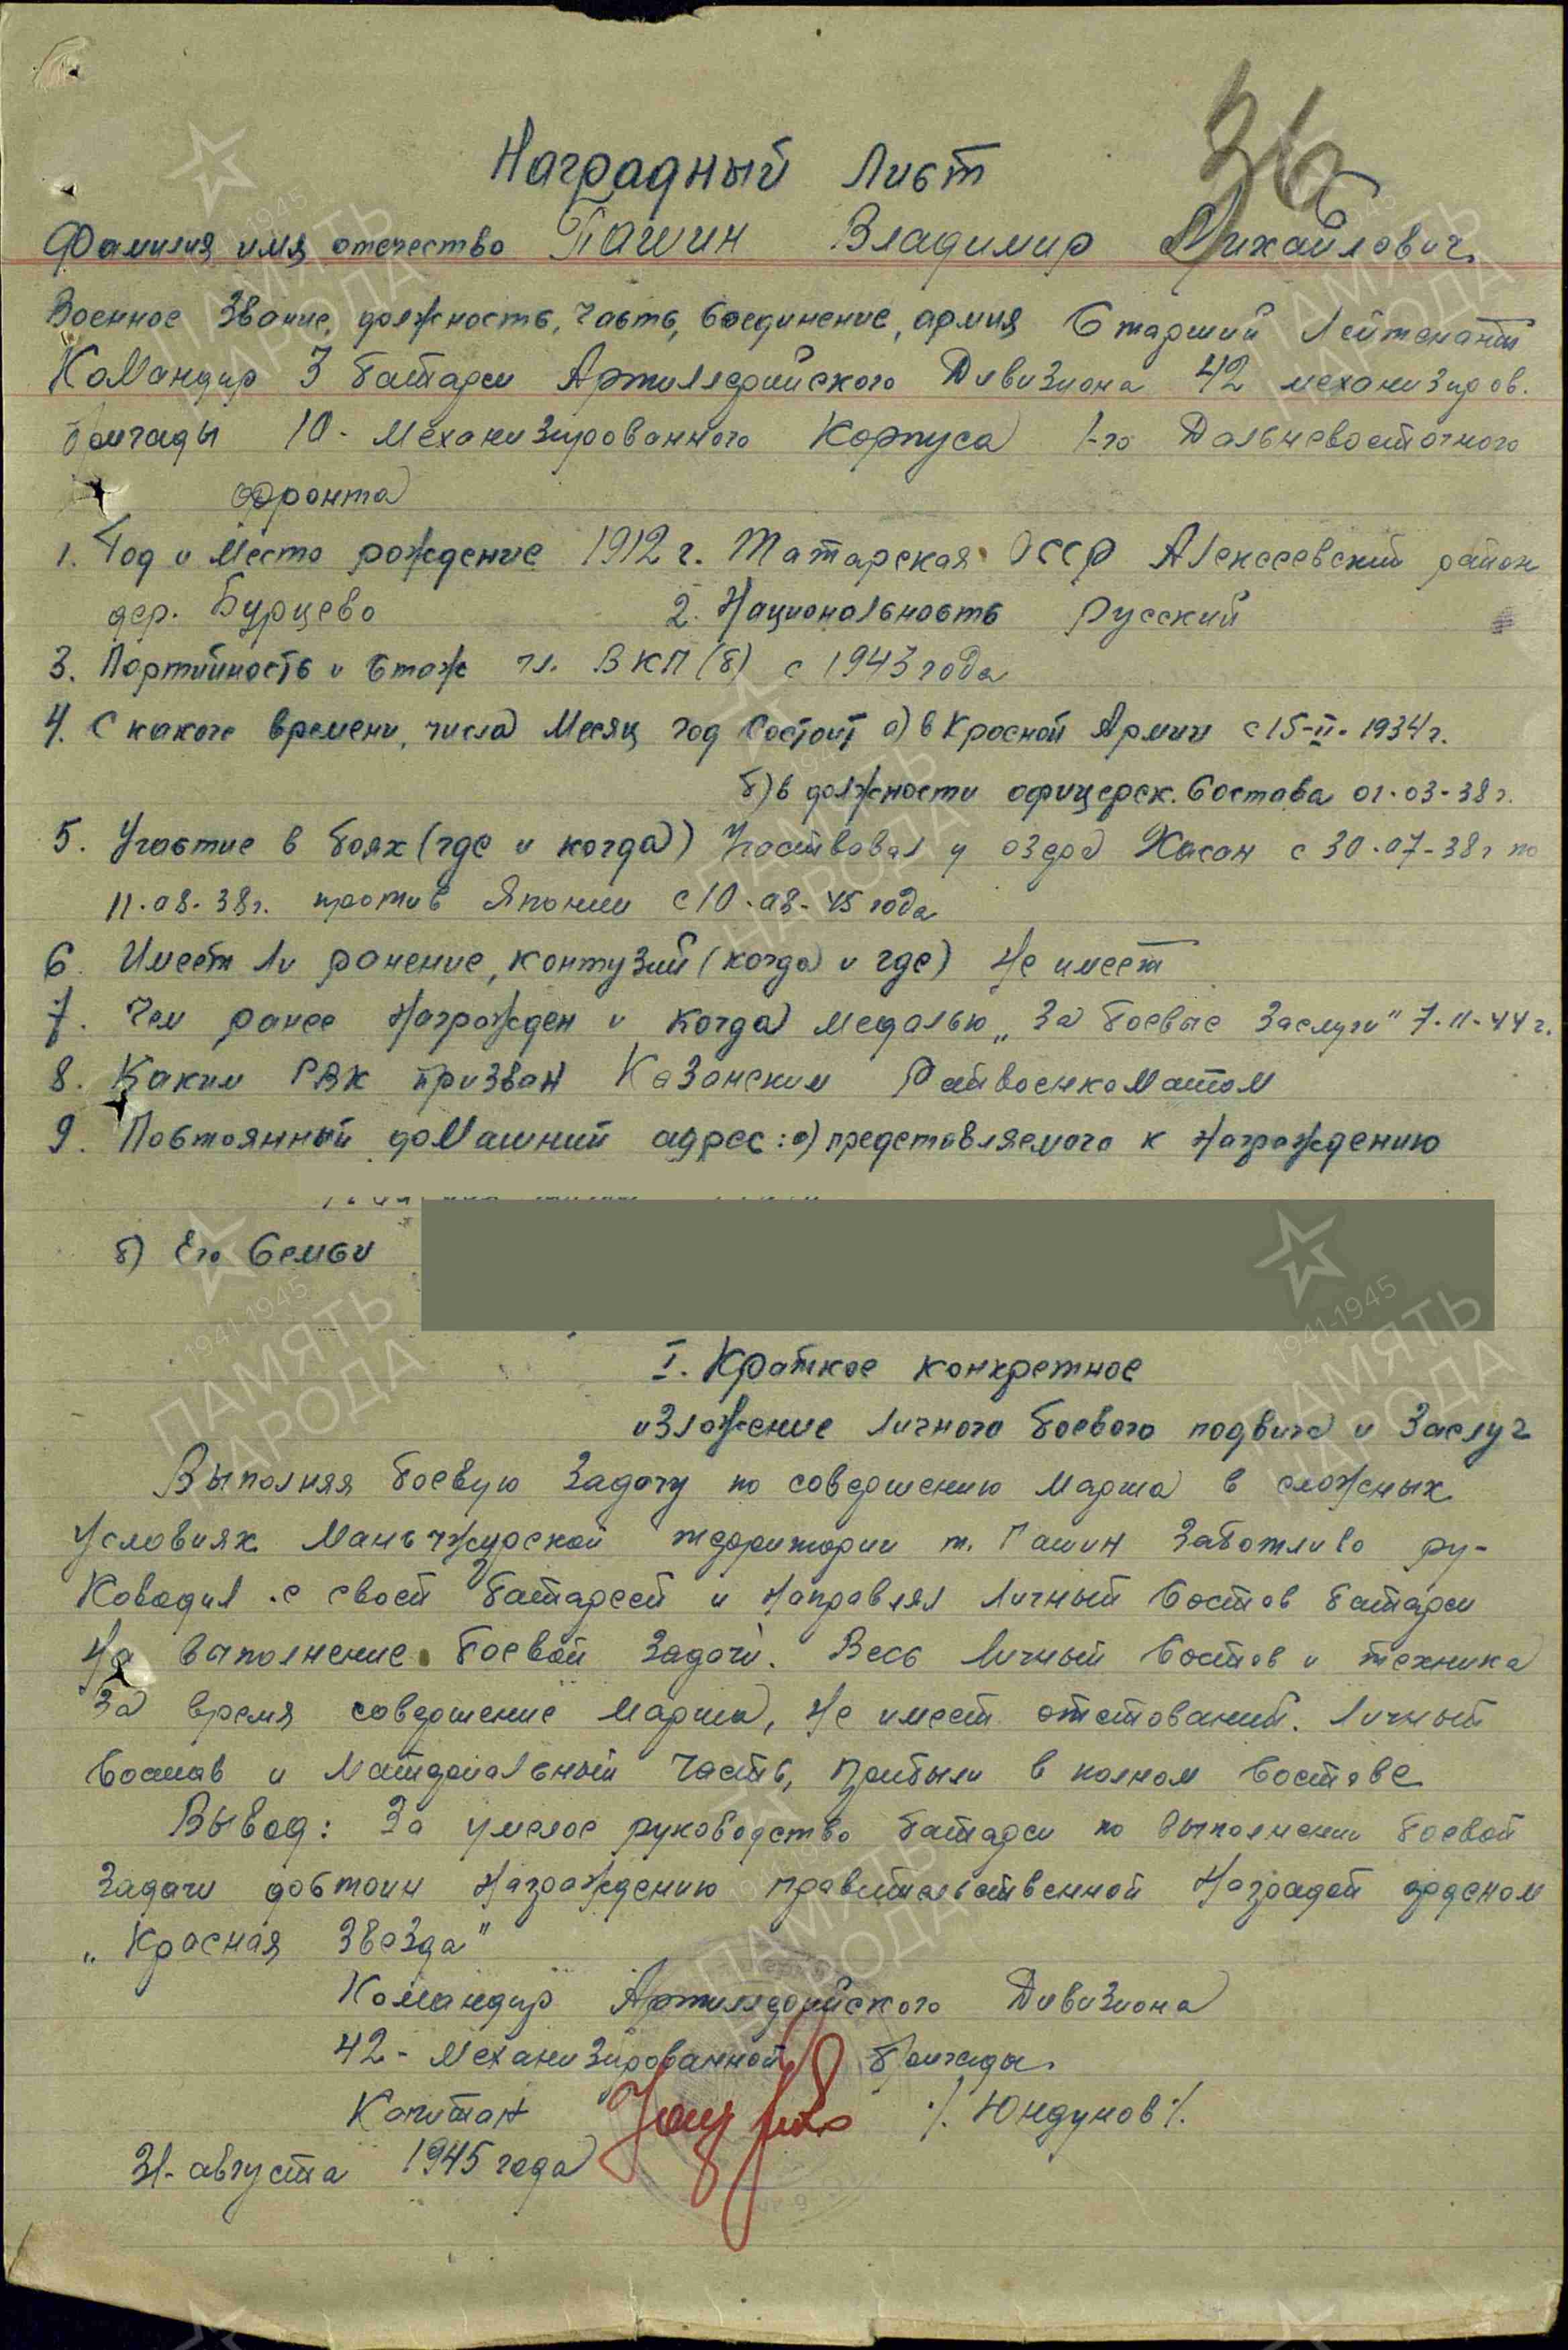 36
Наградный Лист
Фамилия имя отчество Пашин Владимир Михайлович
Военное звание, должность, часть, соединение, армия Старший Лейтенант
Командир 3 батареи Артиллерийского Дивизиона 42 механизиров.
бригады 10-Механизированного Корпуса 1-го Дальневосточного
фронта
1. Год и Место рождение 1912 г. Татарская ССР Алексеевский район
дер. Бурцево 2. Национальность Русский
3. Партийность и стаж чл. ВКП(б) с 1943 года
4. С какого времени, числа Месяц год состоит а) в Красной Армии с 15-II-1934 г.
б) в должности офицерск. состава 01-03-38 г.
5. Участие в боях (где и когда) Участвовал у озера Хасан с 30-07-38 г по
11-08-38 г. против Японии с 10-08-45 года
6. Имеет ли ранение, контузий (когда и где) Не имеет
7. Чем ранее Награжден и когда медалью „За боевые заслуги" 7-11-44 г.
8. Каким РВК призван Казанским Райвоенкоматом
9. Постоянный домашний адрес: а) представляемого к награждению
б) Его Семьи
I. Краткое конкретное
изложение личного боевого подвига и заслуг
Выполняя боевую задачу по совершению марша в сложных
условиях Маньчжурской территории т. Пашин заботливо ру-
ководил с своей батареей и направлял личный состав батареи
На выполнение боевой задачи. Весь личный состав и техника
за время совершение марша, Не имеет отставаний. Личный
состав и материальный часть, прибыли в полном составе
Вывод: За умелое руководство батареи по выполнении боевой
задачи достоин Награждению правительственной Наградой орденом
„Красная Звезда"
Командир Артиллерийского Дивизиона
42-Механизированной бригады.
Капитан /. Юндунов /.
31-августа 1945 года
1941-1945
ПАМЯТЬ
НАРОДА